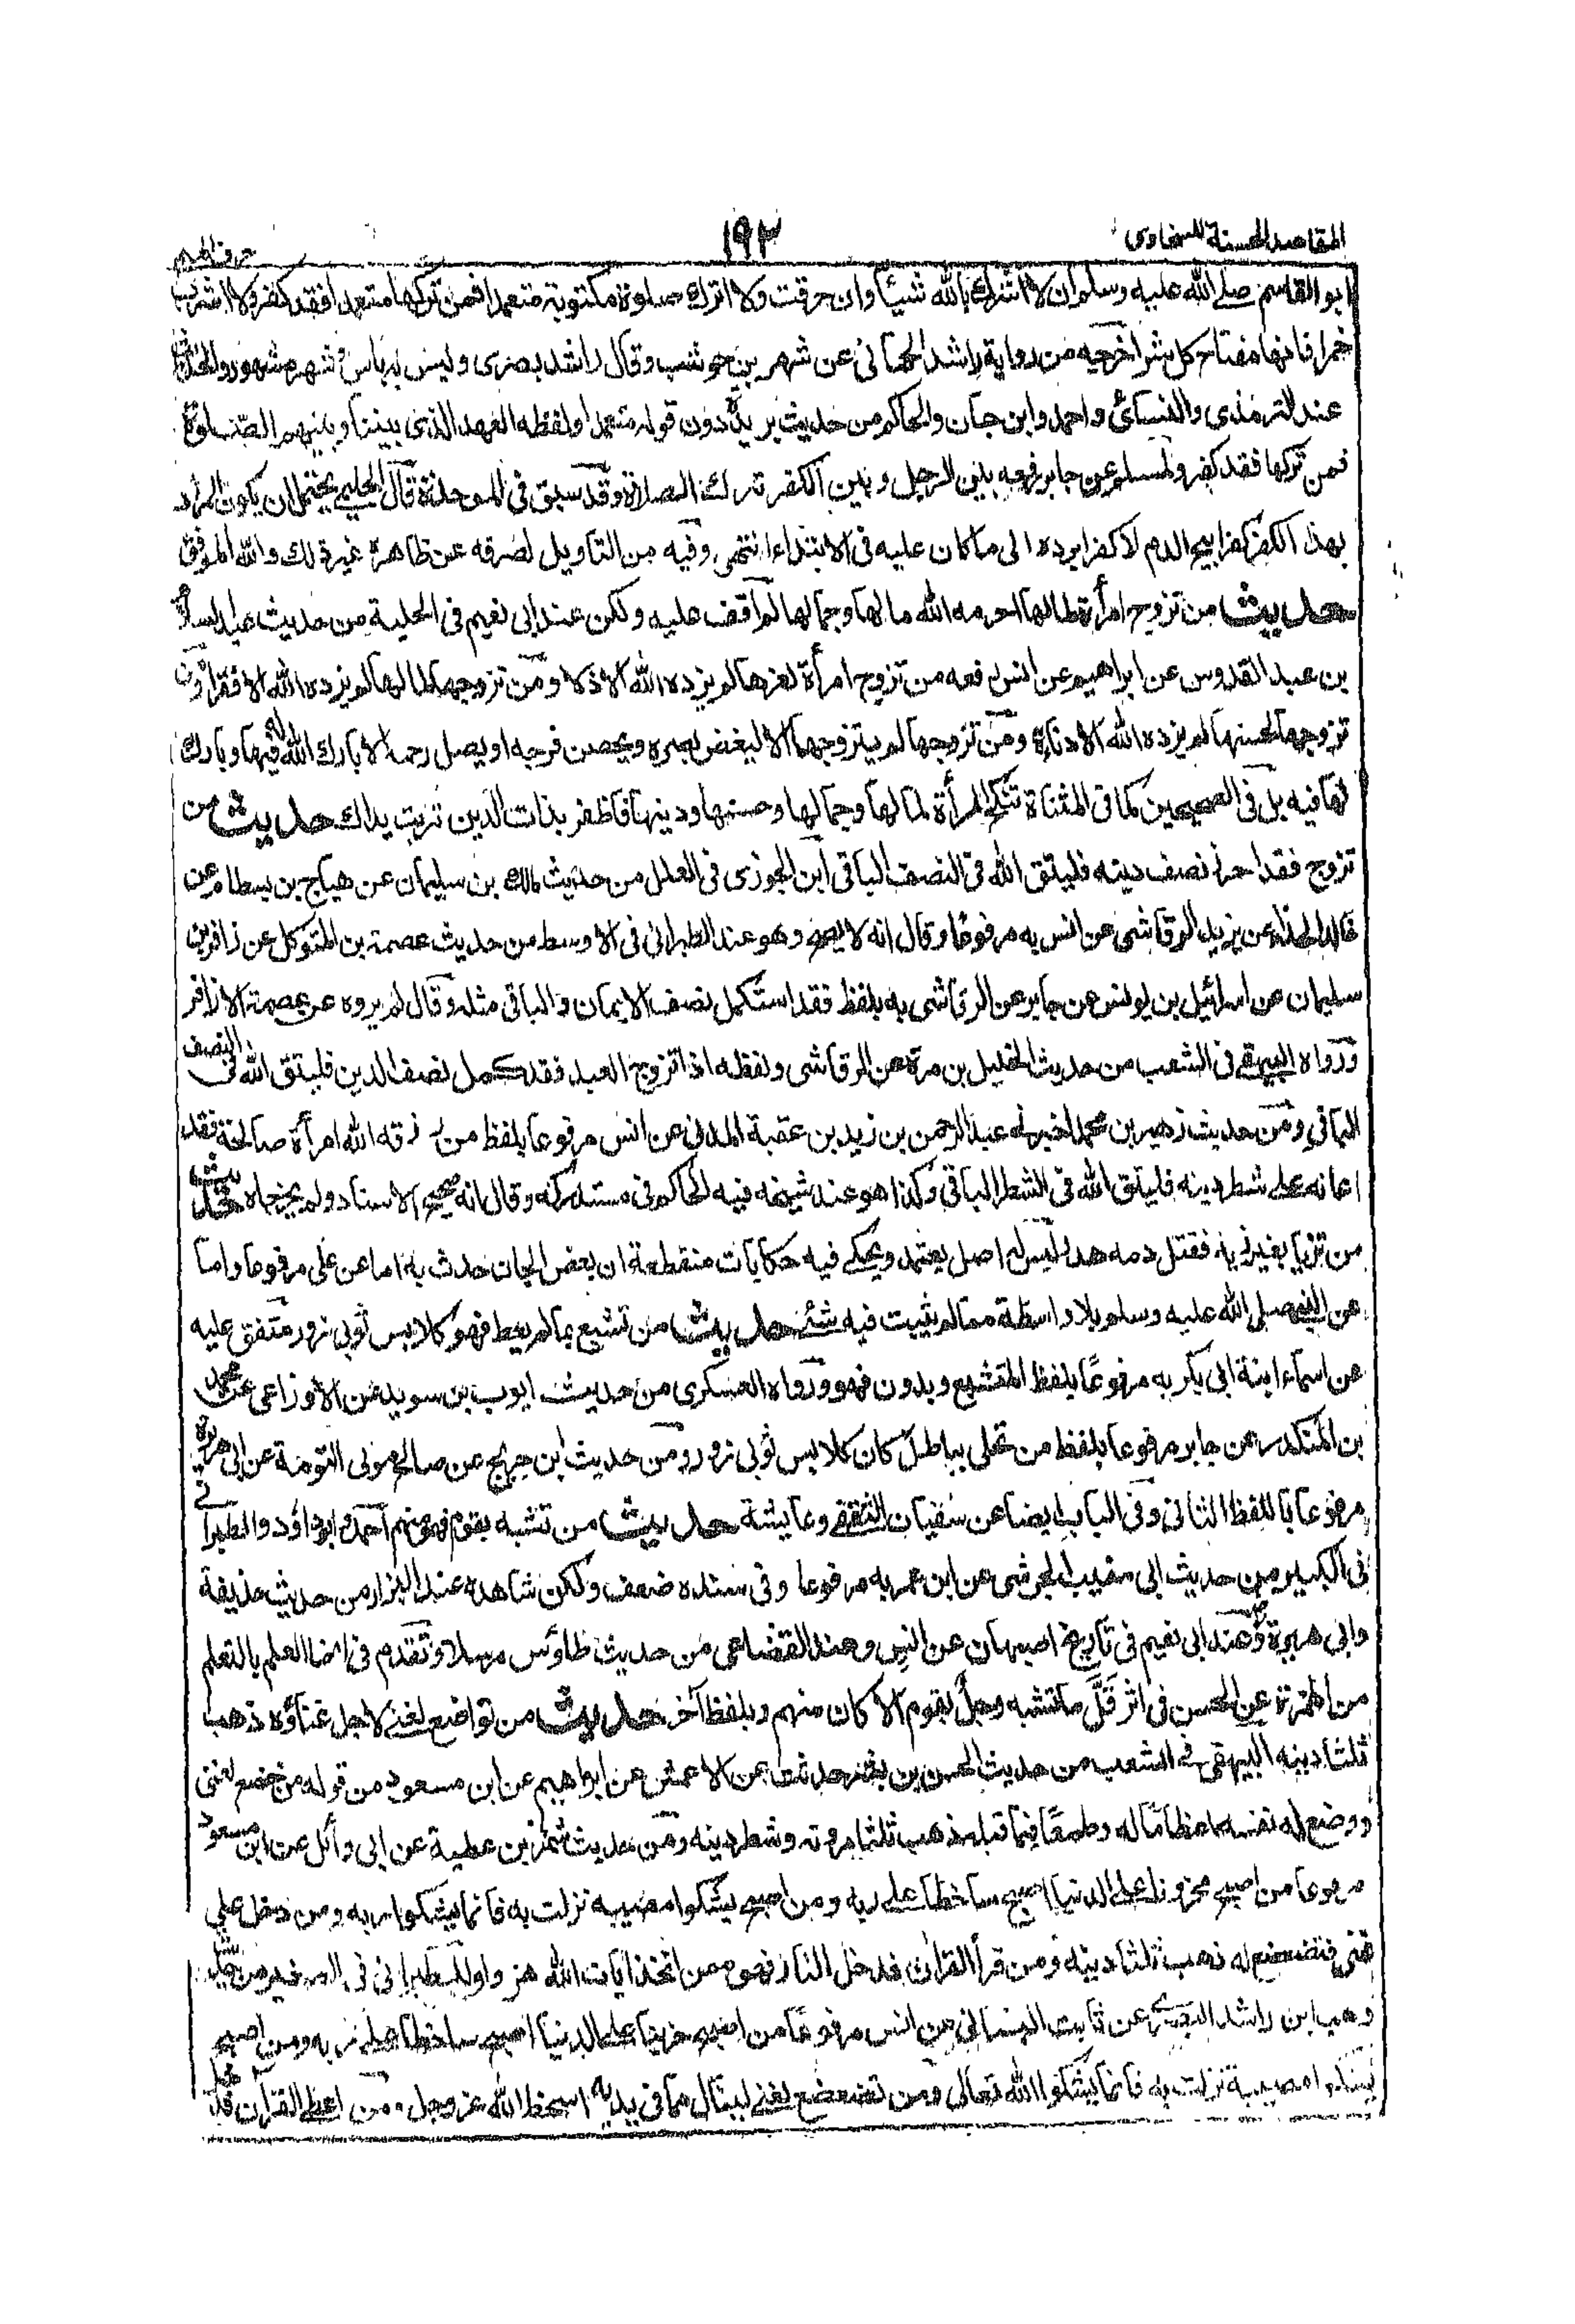 المقاصد الحسنة للسخاوى ١٩٣ حرف الميم
ابو القاسم صلى الله عليه وسلم ان لا اشرك بالله شيئا وان حرقت ولا اترك صلوة مكتوبة متعمدا فمن تركها متعمدا فقد كفر ولا اشرب
خمرا فانها مفتاح كل شر اخرجه من رواية راشد الحمانى عن شهر بن حوشب وقال راشد بصرى وليس به باس وشهر مشهور والحديث
عند الترمذى والنسائى واحمد وابن حبان والحاكم من حديث بريدة دون قوله متعمدا ولفظه العهد الذى بيننا وبينهم الصلوة
فمن تركها فقد كفر ولمسلم عن جابر رفعه بين الرجل وبين الكفر ترك الصلاة وقد سبق فى الموحدة قال الحليمى يحتمل ان يكون المراد
بهذا الكفر كفرا يبيح الدم لا كفرا يرده الى ما كان عليه فى الابتداء انتهى وفيه من التاويل لصرفه عن ظاهره غير ذلك والله الموفق
حديث من تزوج امرأة لمالها احرمه الله مالها وجمالها لم اقف عليه ولكن عند ابى نعيم فى الحلية من حديث عبد السلام
بن عبد القدوس عن ابراهيم عن انس رفعه من تزوج امرأة لعزها لم يزده الله الا ذلا ومن تزوجها لمالها لم يزده الله الا فقرا ومن
تزوجها لحسنها لم يزده الله الا دناءة ومن تزوجها لم يتزوجها الا ليغض بصره ويحصن فرجه او يصل رحمه الا بارك الله له فيها وبارك
لها فيه بل فى الصحيحين كما فى المثناة تنكح المرأة لمالها وجمالها وحسبها ودينها فاظفر بذات الدين تربت يداك حديث من
تزوج فقد احرز نصف دينه فليتق الله فى النصف الباقى ابن الجوزى فى العلل من حديث مالك بن سليمان عن هياج بن بسطام عن
خالد الحذاء عن يزيد الرقاشى عن انس به مرفوعا وقال انه لا يصح وهو عند الطبرانى فى الاوسط من حديث عصمة بن المتوكل عن زافر بن
سليمان عن اسرائيل بن يونس عن جابر عن الرقاشى به بلفظ فقد استكمل نصف الايمان والباقى مثله وقال لم يروه عن عصمة الا زافر
ورواه البيهقى فى الشعب من حديث الخليل بن مرة عن الرقاشى ولفظه اذا تزوج العبد فقد كمل نصف الدين فليتق الله فى النصف
الباقى ومن حديث زهير بن محمد اخبرنى عبد الرحمن بن زيد بن عقبة المدنى عن انس مرفوعا بلفظ من رزقه الله امرأة صالحة فقد
اعانه على شطر دينه فليتق الله فى الشطر الباقى وكذا هو عند شيخه فيه الحاكم فى مستدركه وقال انه صحيح الاسناد ولم يخرجاه حديث
من تزيا بغير زيه فقتل دمه هدر ليس له اصل يعتمد ويحكى فيه حكايات منقطعة ان بعض الجان حدث به اما عن على مرفوعا واما
عن النبى صلى الله عليه وسلم بلا واسطة مما لم يثبت فيه شئ حديث من تشبع بما لم يعط فهو كلابس ثوبى زور متفق عليه
عن اسماء ابنة ابى بكر به مرفوعا بلفظ المتشبع وبدون فهو ورواه العسكرى من حديث ايوب بن سويد عن الاوزاعى عن محمد
بن المنكدر عن جابر مرفوعا بلفظ من تحلى بباطل كان كلابس ثوبى زور ومن حديث ابن جريج عن صالح مولى التومة عن ابى هريرة
مرفوعا باللفظ الثانى وفى الباب ايضا عن سفيان الثقفى وعايشة حديث من تشبه بقوم فهو منهم احمد وابو داؤد والطبرانى
فى الكبير من حديث ابى منيب الجرشى عن ابن عمر به مرفوعا وفى سنده ضعف ولكن شاهده عند البزار من حديث حذيفة
وابى هريرة وعند ابى نعيم فى تاريخ اصبهان عن انس وعند القضاعى من حديث طاؤس مرسلا وتقدم فى انما العلم بالتعلم
من الهمزة عن الحسن فى اثر قَلَّ ما تشبه رجل بقوم الا كان منهم وبلفظ آخر حديث من تواضع لغنى لاجل غناؤه ذهب
ثلثا دينه البيهقى فى الشعب من حديث الحسن بن بشر حدثنا عن الاعمش عن ابراهيم عن ابن مسعود من قوله من خضع لغنى
ووضع له نفسه اعظاما له وطمعا فيما قبله ذهب ثلثا مروته وشطر دينه ومن حديث شمر بن عطية عن ابى وائل عن ابن مسعود
مرفوعا من اصبح محزونا على الدنيا اصبح ساخطا على ربه ومن اصبح يشكوا مصيبه نزلت به فانما يشكوا ربه ومن دخل على
غنى فتضعضع له ذهب ثلثا دينه ومن قرأ القرأن فدخل النار فهو ممن اتخذ ايات الله هزوا وللطبرانى فى الصغير من حديث
وهب ابن راشد البصرى عن ثابت البنانى عن انس مرفوعا من اصبح حزينا على الدنيا اصبح ساخطا على ربه ومن اصبح
يشكوا مصيبة نزلت به فانما يشكوا الله تعالى ومن تضعضع لغنى لينال مما فى يديه اسخط الله عز وجل ومن اعطى القرآن فدخل